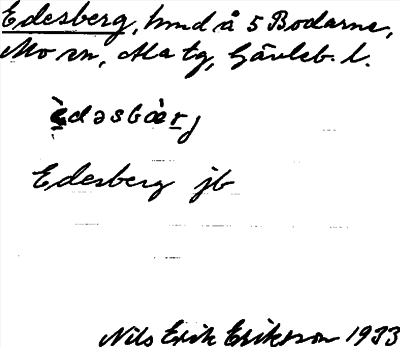 Edesberg, hmd å 5 Bodarne,
Mo sn, Ala tg, Gävleb. l.
è̱dəsbæ̀r̠j
Edesberg jb
Nils Erik Eriksson 1933